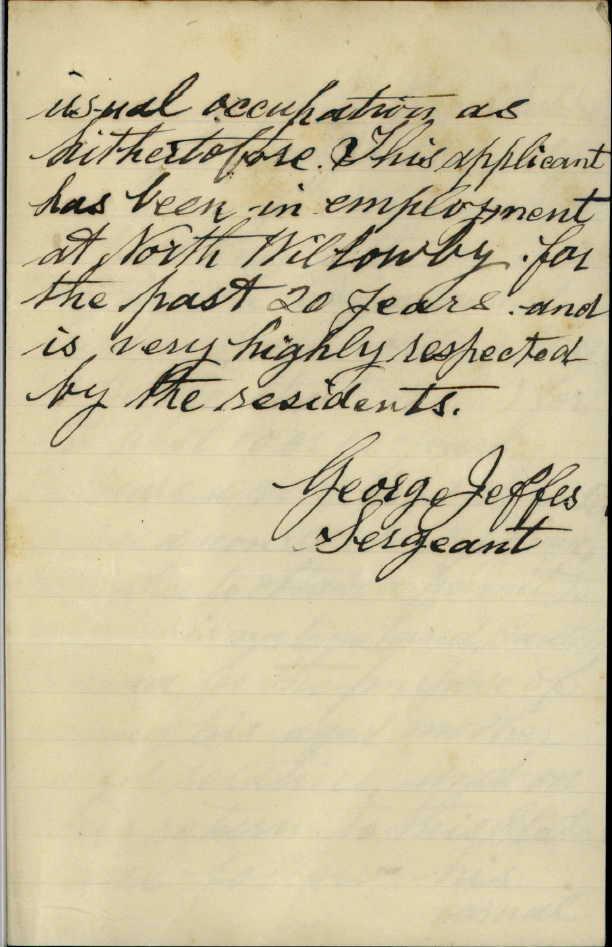 usual occupation as
hithertofore. This applicant
has been in employment
at North Willowby for
the past 20 years and
is very highly respected
by the residents.
George Jeffes
Sergeant